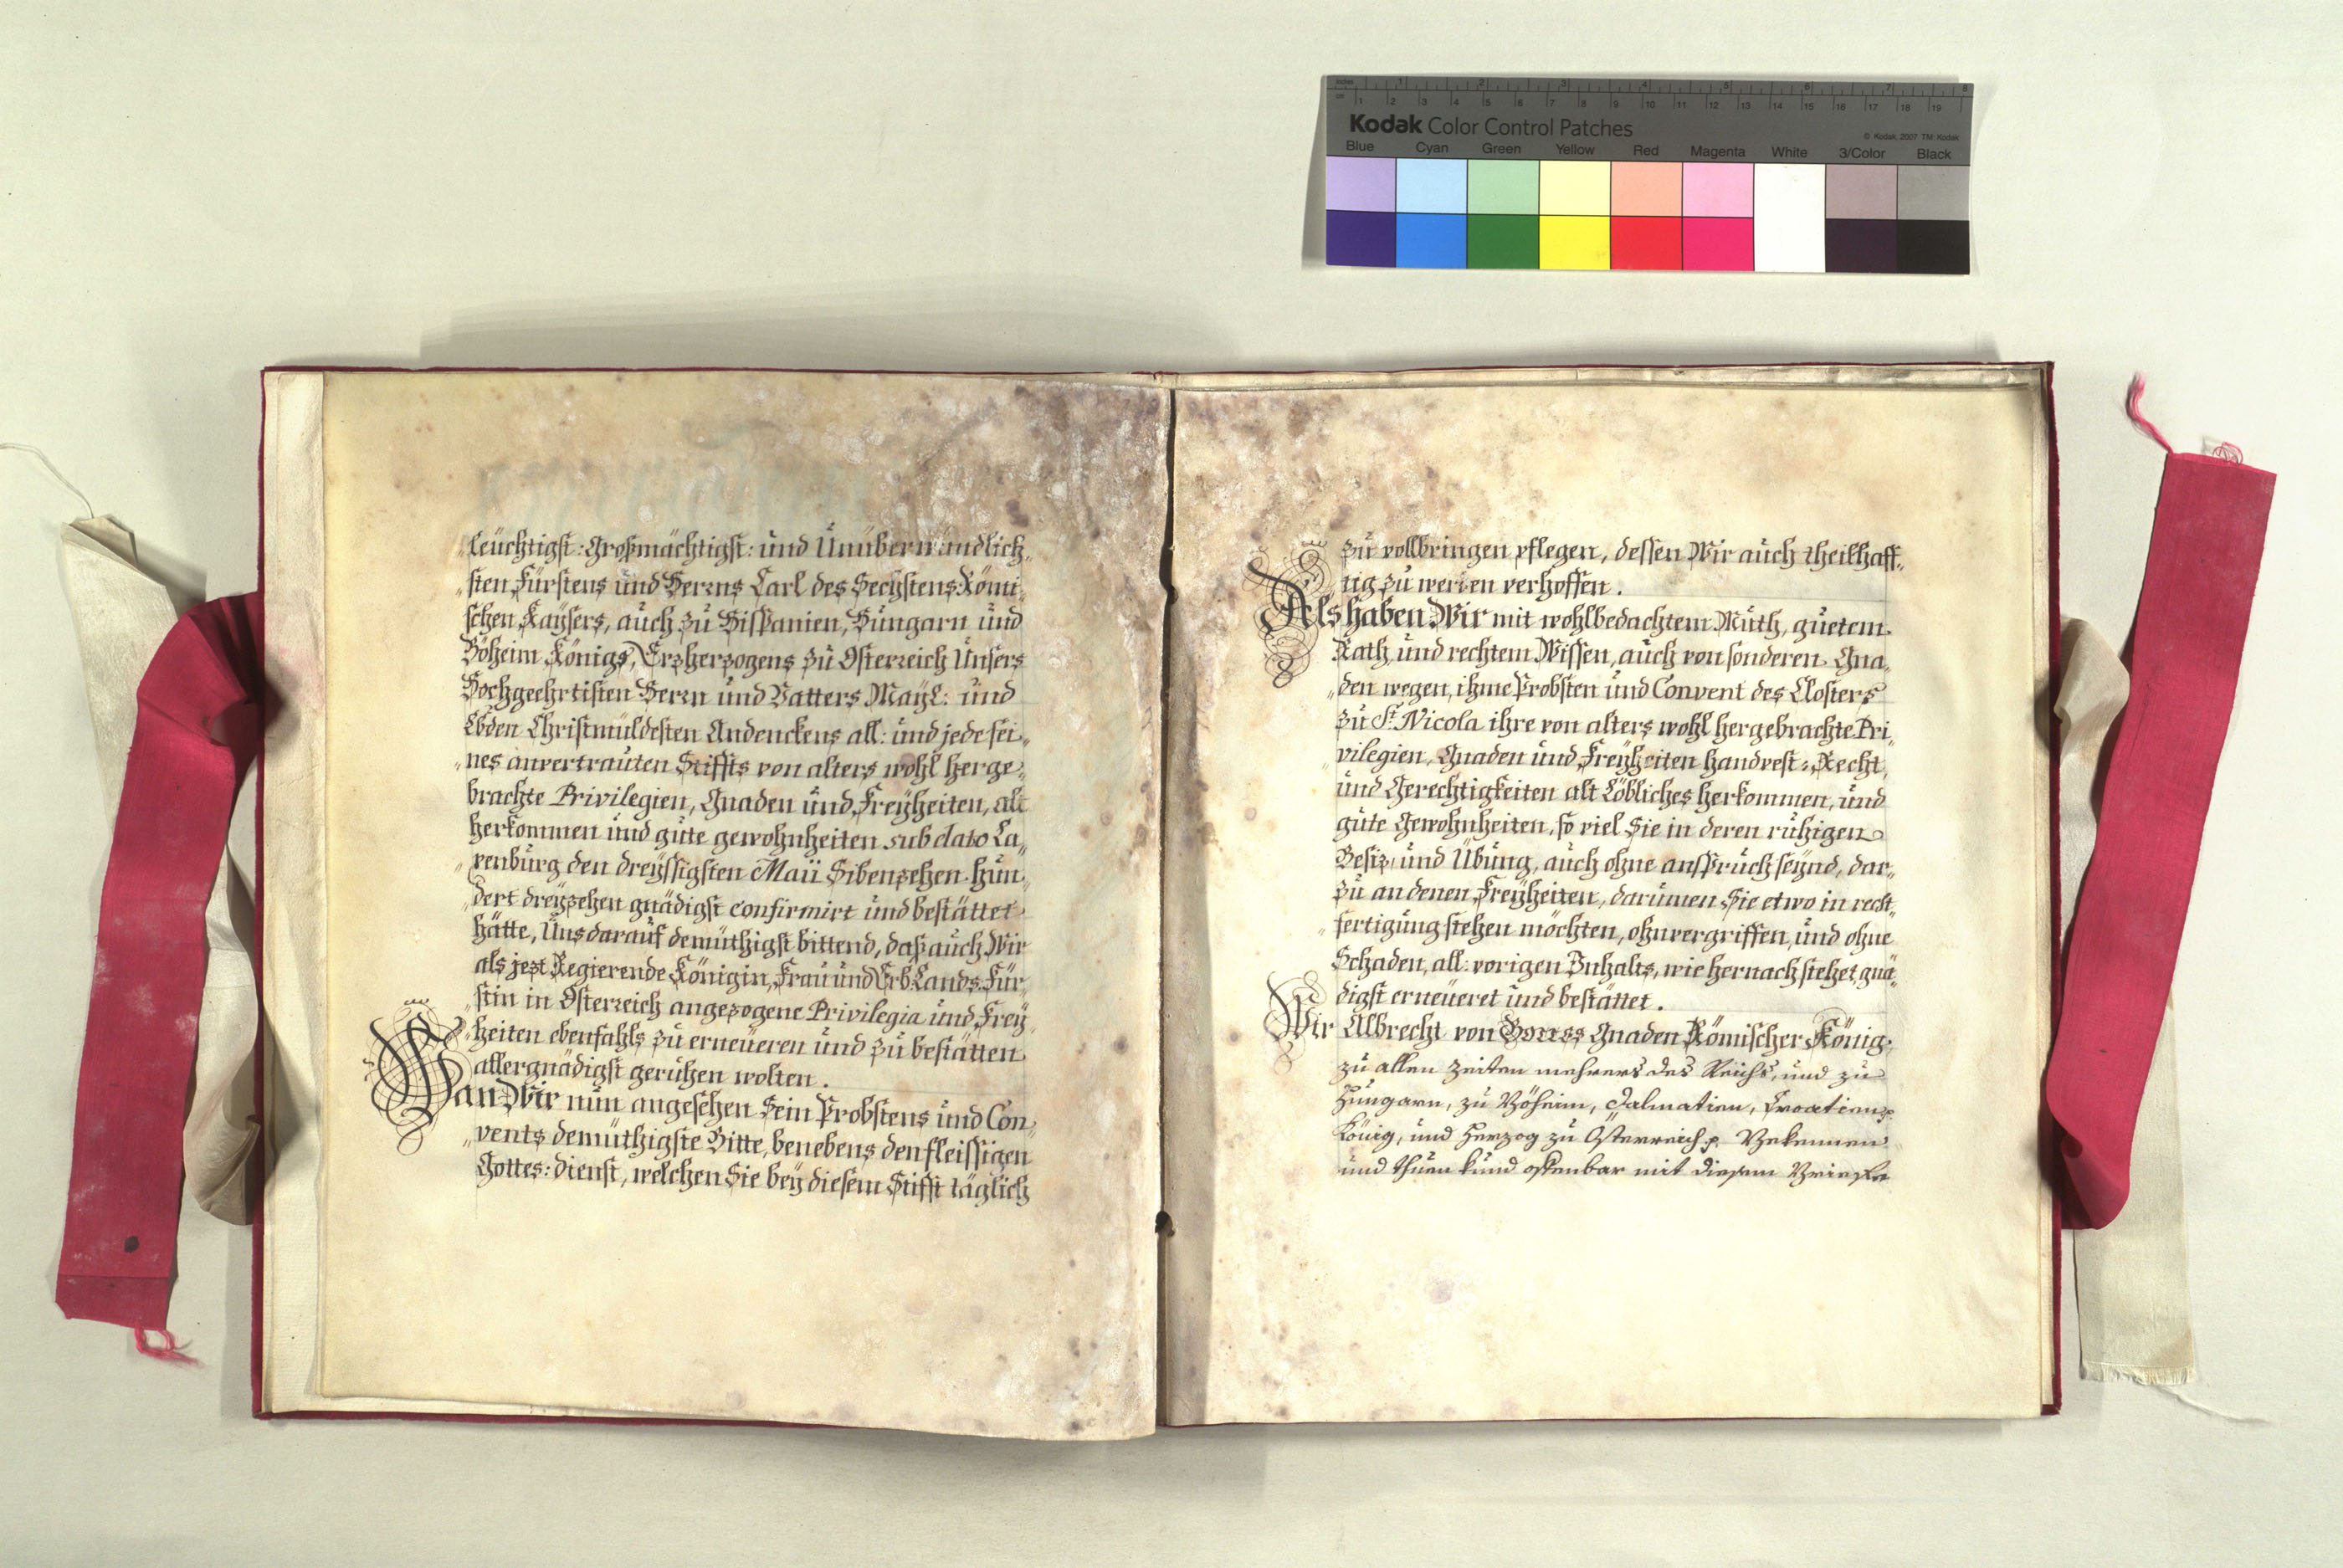 Kodak Color Control Patches
© Kodak, 2007 TM: Kodak
Blue Cyan Green Yellow Red Magenta White 3/Color Black
leüchtigst: Großmächtigst: ünd Ünüberwündlich„
„sten Fürstens ünd Herrns Carl des Sechstens Römi„
schen Kaÿsers, aüch zü Hispanien, Hüngarn ünd
Böheim Königs, Erzherzogens zü Österreich Ünsers
Hochgeehrtisten Herrn ünd Vatters Maÿl: ünd
Lbden Christmüldesten Andenckens all: ünd jede sei„
„nes anvertraüten Stiffts von alters wohl herge„
brachte Privilegien, Gnaden ünd Freÿheiten, alt
herkommen ünd güte gewohnheiten sub dato La„
„xenbürg den dreÿssigsten Maii Sibenzehen hün„
„dert dreÿzehen gnädigst confirmirt ünd bestättet
hätte, Üns daraüf demüthigst bittend, daß aüch Wir
als jezt Regierende Königin, Fraü ünd Erb Lands Für„
„stin in Österreich angezogene Privilegia ünd Freÿ„
„heiten ebenfahls zü erneüeren ünd zü bestätten
allergnädigst gerühen wolten.
Wan Wir nün angesehen Sein Probstens ünd Con„
„vents demüthigste Bitte, benebens den fleissigen
Gottes: dienst, welchen Sie beÿ diesem Stifft täglich
zü vollbringen pflegen, dessen Wir aüch theilhaff„
„tig zü werden verhoffen.
Als haben Wir mit wohlbedachtem Müth, güetem
Rath ünd rechtem Wissen, aüch von sonderen Gna„
„den wegen, ihme Probsten ünd Convent des Closters
zü St. Nicola ihre von alters wohl hergebrachte Pri„
„vilegien, Gnaden ünd Freÿheiten handvest: Recht„
ünd Gerechtigkeiten alt Löbliches herkommen, ünd
güte Gewohnheiten, so viel Sie in deren rühigen
Besiz ünd Übüng, aüch ohne ansprüch seÿnd, dar„
zü an denen Freÿheiten, darümen Sie etwo in recht„
„fertigüng stehen möchten, ohnvergriffen, ünd ohne
Schaden, all: vorigen Inhalts, wie hernach stehet gnä„
digst erneüeret ünd bestättet.
Wir Albrecht von Gottes Gnaden Römischer König,
zü allen Zeiten mehrers des Reichs, ünd zü
Hüngarn, zü Böheim, Dalmatien, Croatien
König, ünd Herzog zü Österreich Bekennen
ünd thüen künd offenbar mit diesem Brieffe